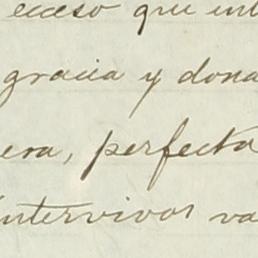 exceso que int
gracia y dona
era, perfecta
intervivos va